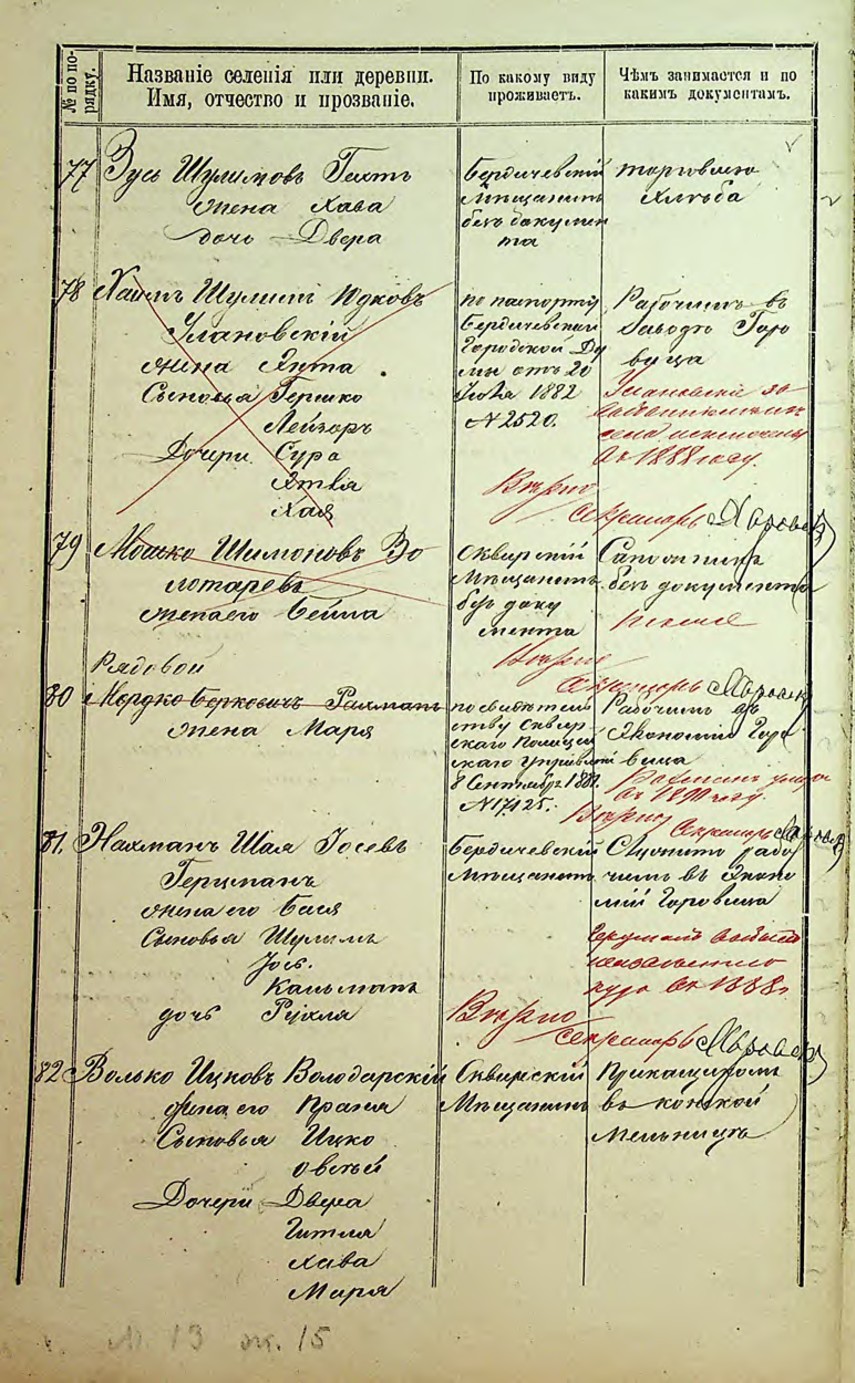 № по по-
рядку.
Названіе селенія или деревни.
Имя, отчество и прозваніе.
По какому виду
проживаетъ.
Чѣмъ занимается и по
какимъ документамъ.
77 Зусь Шулимовъ Гехтъ
жена Хава
дочь Двера
Бердичевскій
Мѣщанинъ
безъ докумен
та
торговлею
Хлѣба
78 Хаимъ Шулимъ Юдковъ
Улановскій
жена Ента
Сыновья Гершко
Лейзоръ
Дочери Сура
Хая
по паспорту
Бердичевской
Городской Ду
мы отъ 20
1882
№ 2520.
Рабочимъ въ
Заводѣ Горо
вица
Улановскій
въ 1888 году.
Вѣрно
Секретарь
79 Мошко Шимоновъ Зо
лотаревъ
жена его Бейла
Сквирскій
Мѣщанинъ
безъ доку
мента
Сапожникъ
безъ документа
Вѣрно
Секретарь
Рядовой
80 Мордко Берковичъ Рахманъ
жена Маря
по свидѣтель
ству Сквир
скаго Полицей
скаго Управленія
8 Сентября 188
№ 17125.
Рабочимъ въ
Экономіи Горо
вица
Рахманъ
въ 1890 году.
Вѣрно
Секретарь
81. Нахманъ Шая Іосевъ
Герцманъ
жена его Бася
Сыновья Шулимъ
Іось.
Кальманъ
дочь Рухля
Бердичевскій
Мѣщанинъ
рабо
чимъ въ Эконо
міи Горовица
въ 1888
Вѣрно
Секретарь
82 Волько Ицковъ Володарскій
жена его
Сыновья Ицко
Овсѣй
Дочери Двера
Гитля
Хава
Маря
Сквирскій
Мѣщанинъ
Прикащикомъ
въ конской
мельницѣ
13 15